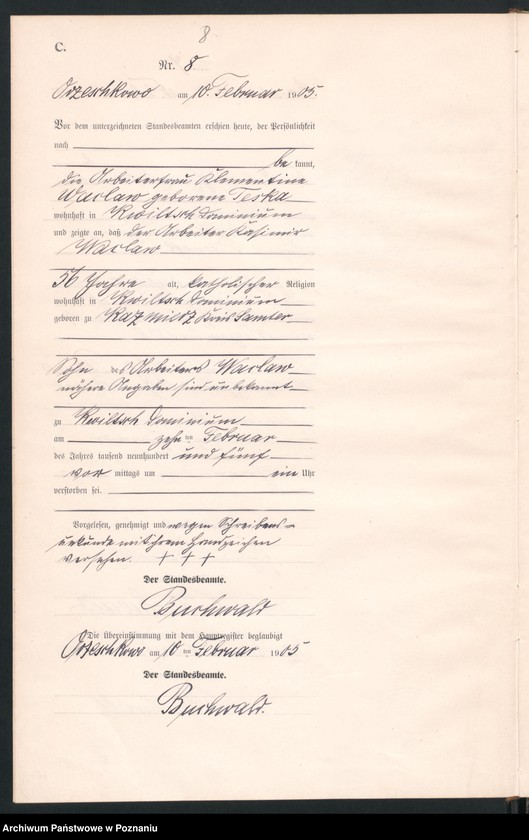 8
C.
Nr. 8
Orzeschkowo am 10. Februar 1905.
Vor dem unterzeichneten Standesbeamten erschien heute, der Persönlichkeit
nach
be kannt,
die Arbeiterfrau Klementine
Waclaw geborene Teska
wohnhaft in Kwiltsch Dominium
und zeigte an, daß der Arbeiter Kasimir
Waclaw
56 Jahre alt, katholischer Religion
wohnhaft in Kwiltsch Dominium
geboren zu Kazmierz Kreis Samter
Sohn des Arbeiters Waclaw
nähere Angaben sind unbekannt
zu Kwiltsch Dominium
am zehnten Februar
des Jahres tausend neunhundert und fünf
vor mittags um ein Uhr
verstorben sei.
Vorgelesen, genehmigt und wegen Schreibens-
unkunde mit ihrem Handzeichen
versehen. + + +
Der Standesbeamte.
Buchwald
Die Übereinstimmung mit dem Hauptregister beglaubigt
Orzeschkowo am 10 ten Februar 1905
Der Standesbeamte.
Buchwald.
Archiwum Państwowe w Poznaniu